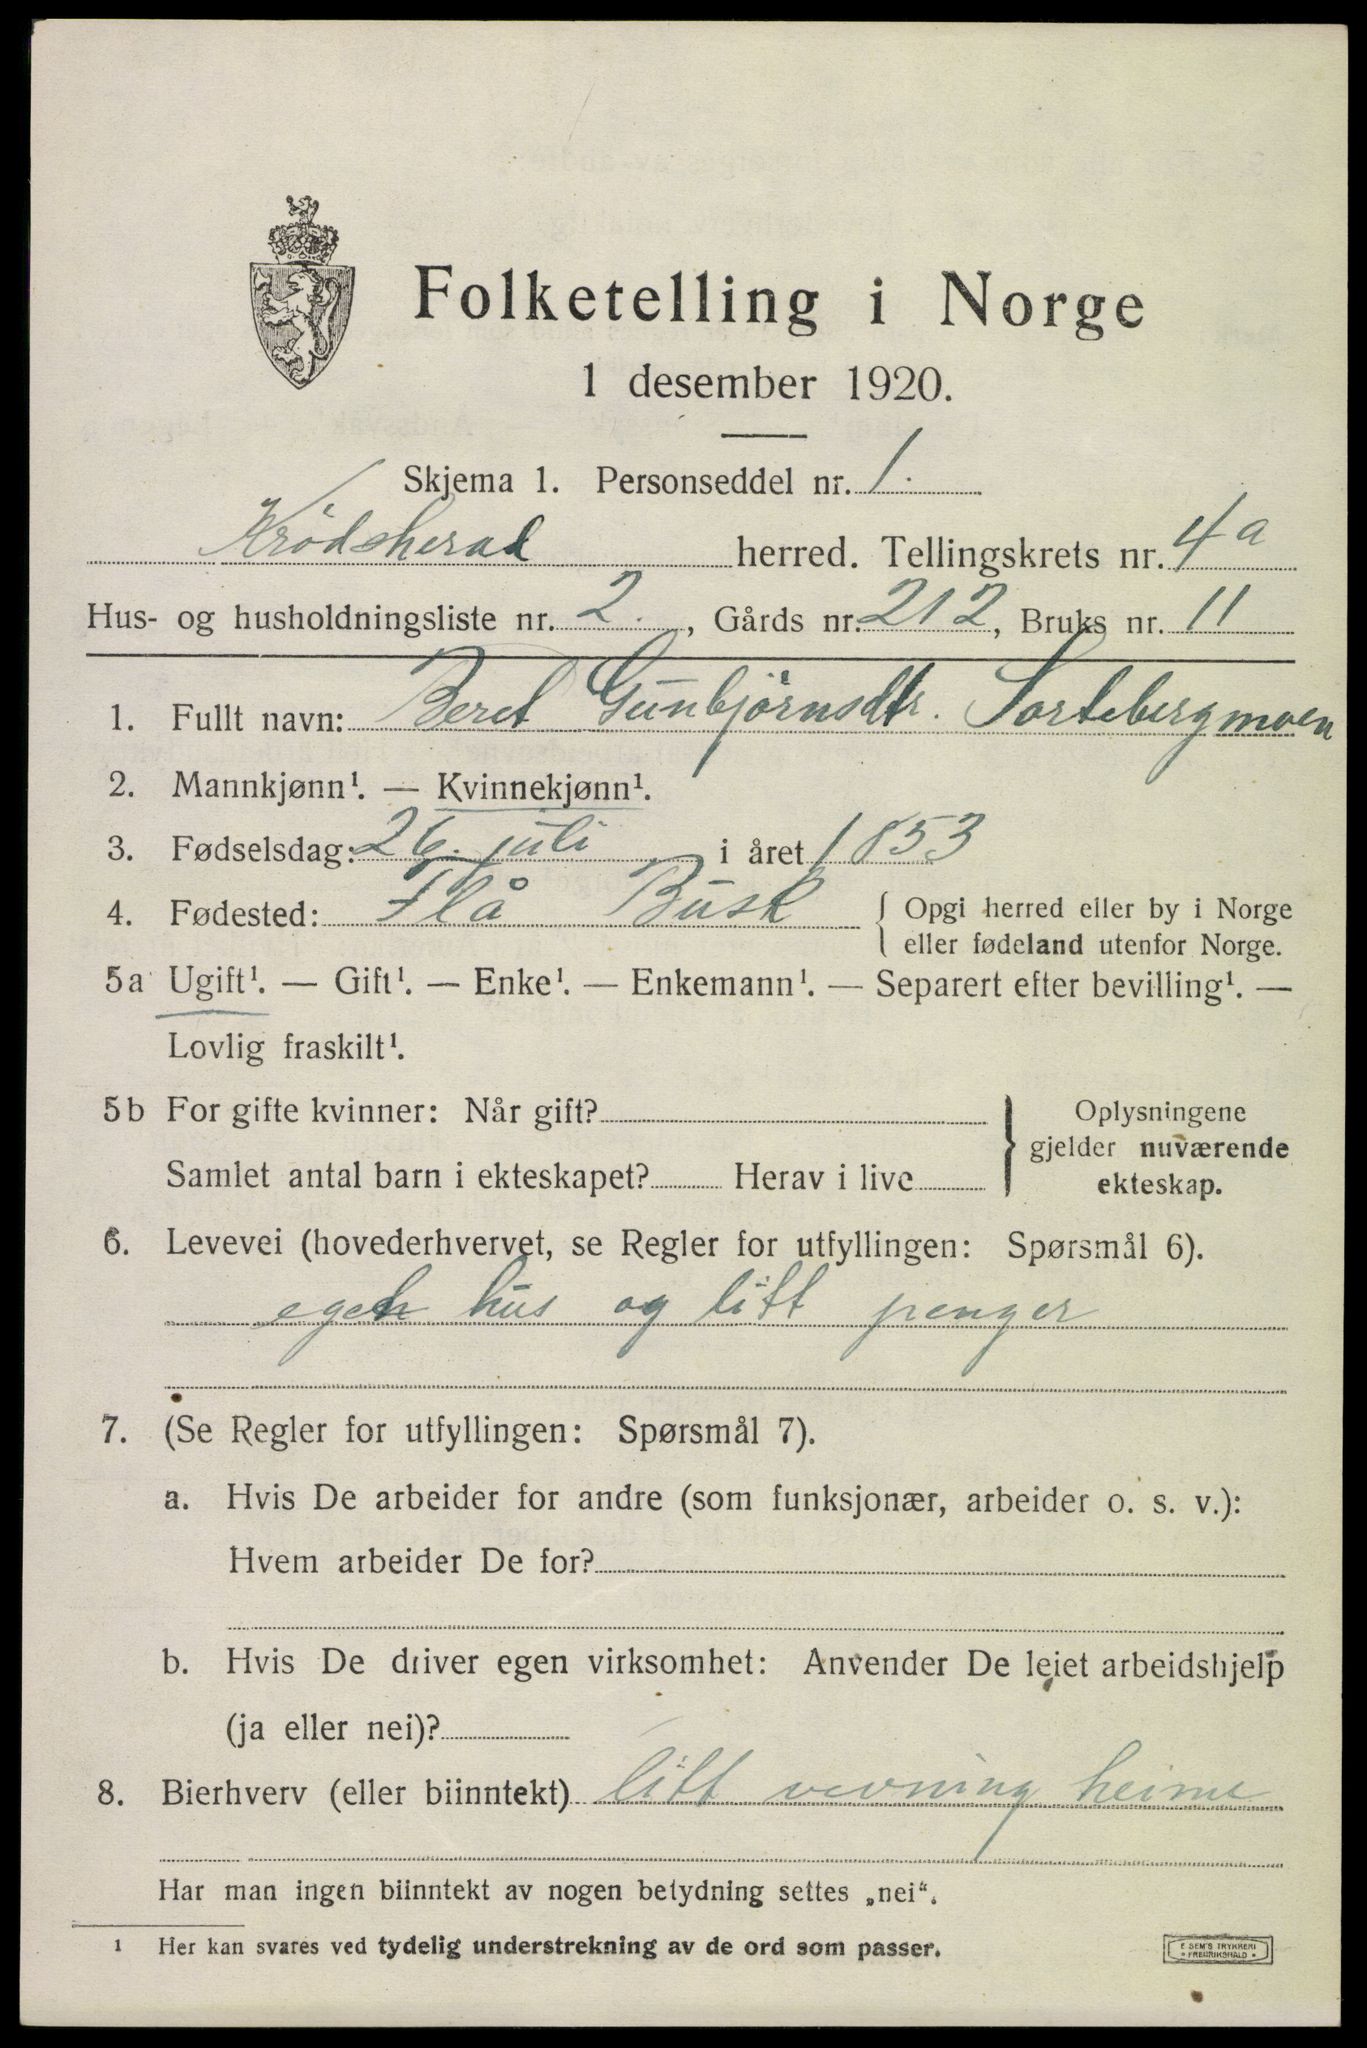 Folketelling i Norge
1 desember 1920.
Skjema 1. Personseddel nr. 1.
Krødsherad herred. Tellingskrets nr. 4a
Hus- og husholdningsliste nr. 2. , Gårds nr. 212, Bruks nr. 11
1. Fullt navn: Beret Gunbjörnsdtr. Sortebergmoen
2. Mannkjønn¹. — Kvinnekjønn¹.
3. Fødselsdag: 26. juli i året 1853
4. Fødested: Flå Busk { Opgi herred eller by i Norge
eller fødeland utenfor Norge.
5a Ugift¹. — Gift¹. — Enke¹. — Enkemann¹. — Separert efter bevilling¹. —
Lovlig fraskilt¹.
5b For gifte kvinner: Når gift?
Samlet antal barn i ekteskapet? Herav i live
} Oplysningene
gjelder nuværende
ekteskap.
6. Levevei (hovederhvervet, se Regler for utfyllingen: Spørsmål 6).
egen hus og litt penger
7. (Se Regler for utfyllingen: Spørsmål 7).
a. Hvis De arbeider for andre (som funksjonær, arbeider o. s. v.):
Hvem arbeider De for?
b. Hvis De driver egen virksomhet: Anvender De leiet arbeidshjelp
(ja eller nei)?
8. Bierhverv (eller biinntekt) litt vevning heime
Har man ingen biinntekt av nogen betydning settes „nei“.
1 Her kan svares ved tydelig understrekning av de ord som passer.
E SEM'S TRYKKERI
FREDRIKSHALD